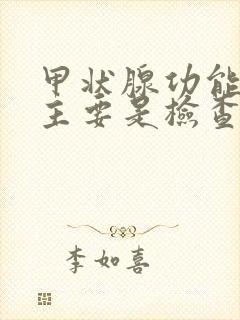 甲状腺功能
主要是检查
李如喜